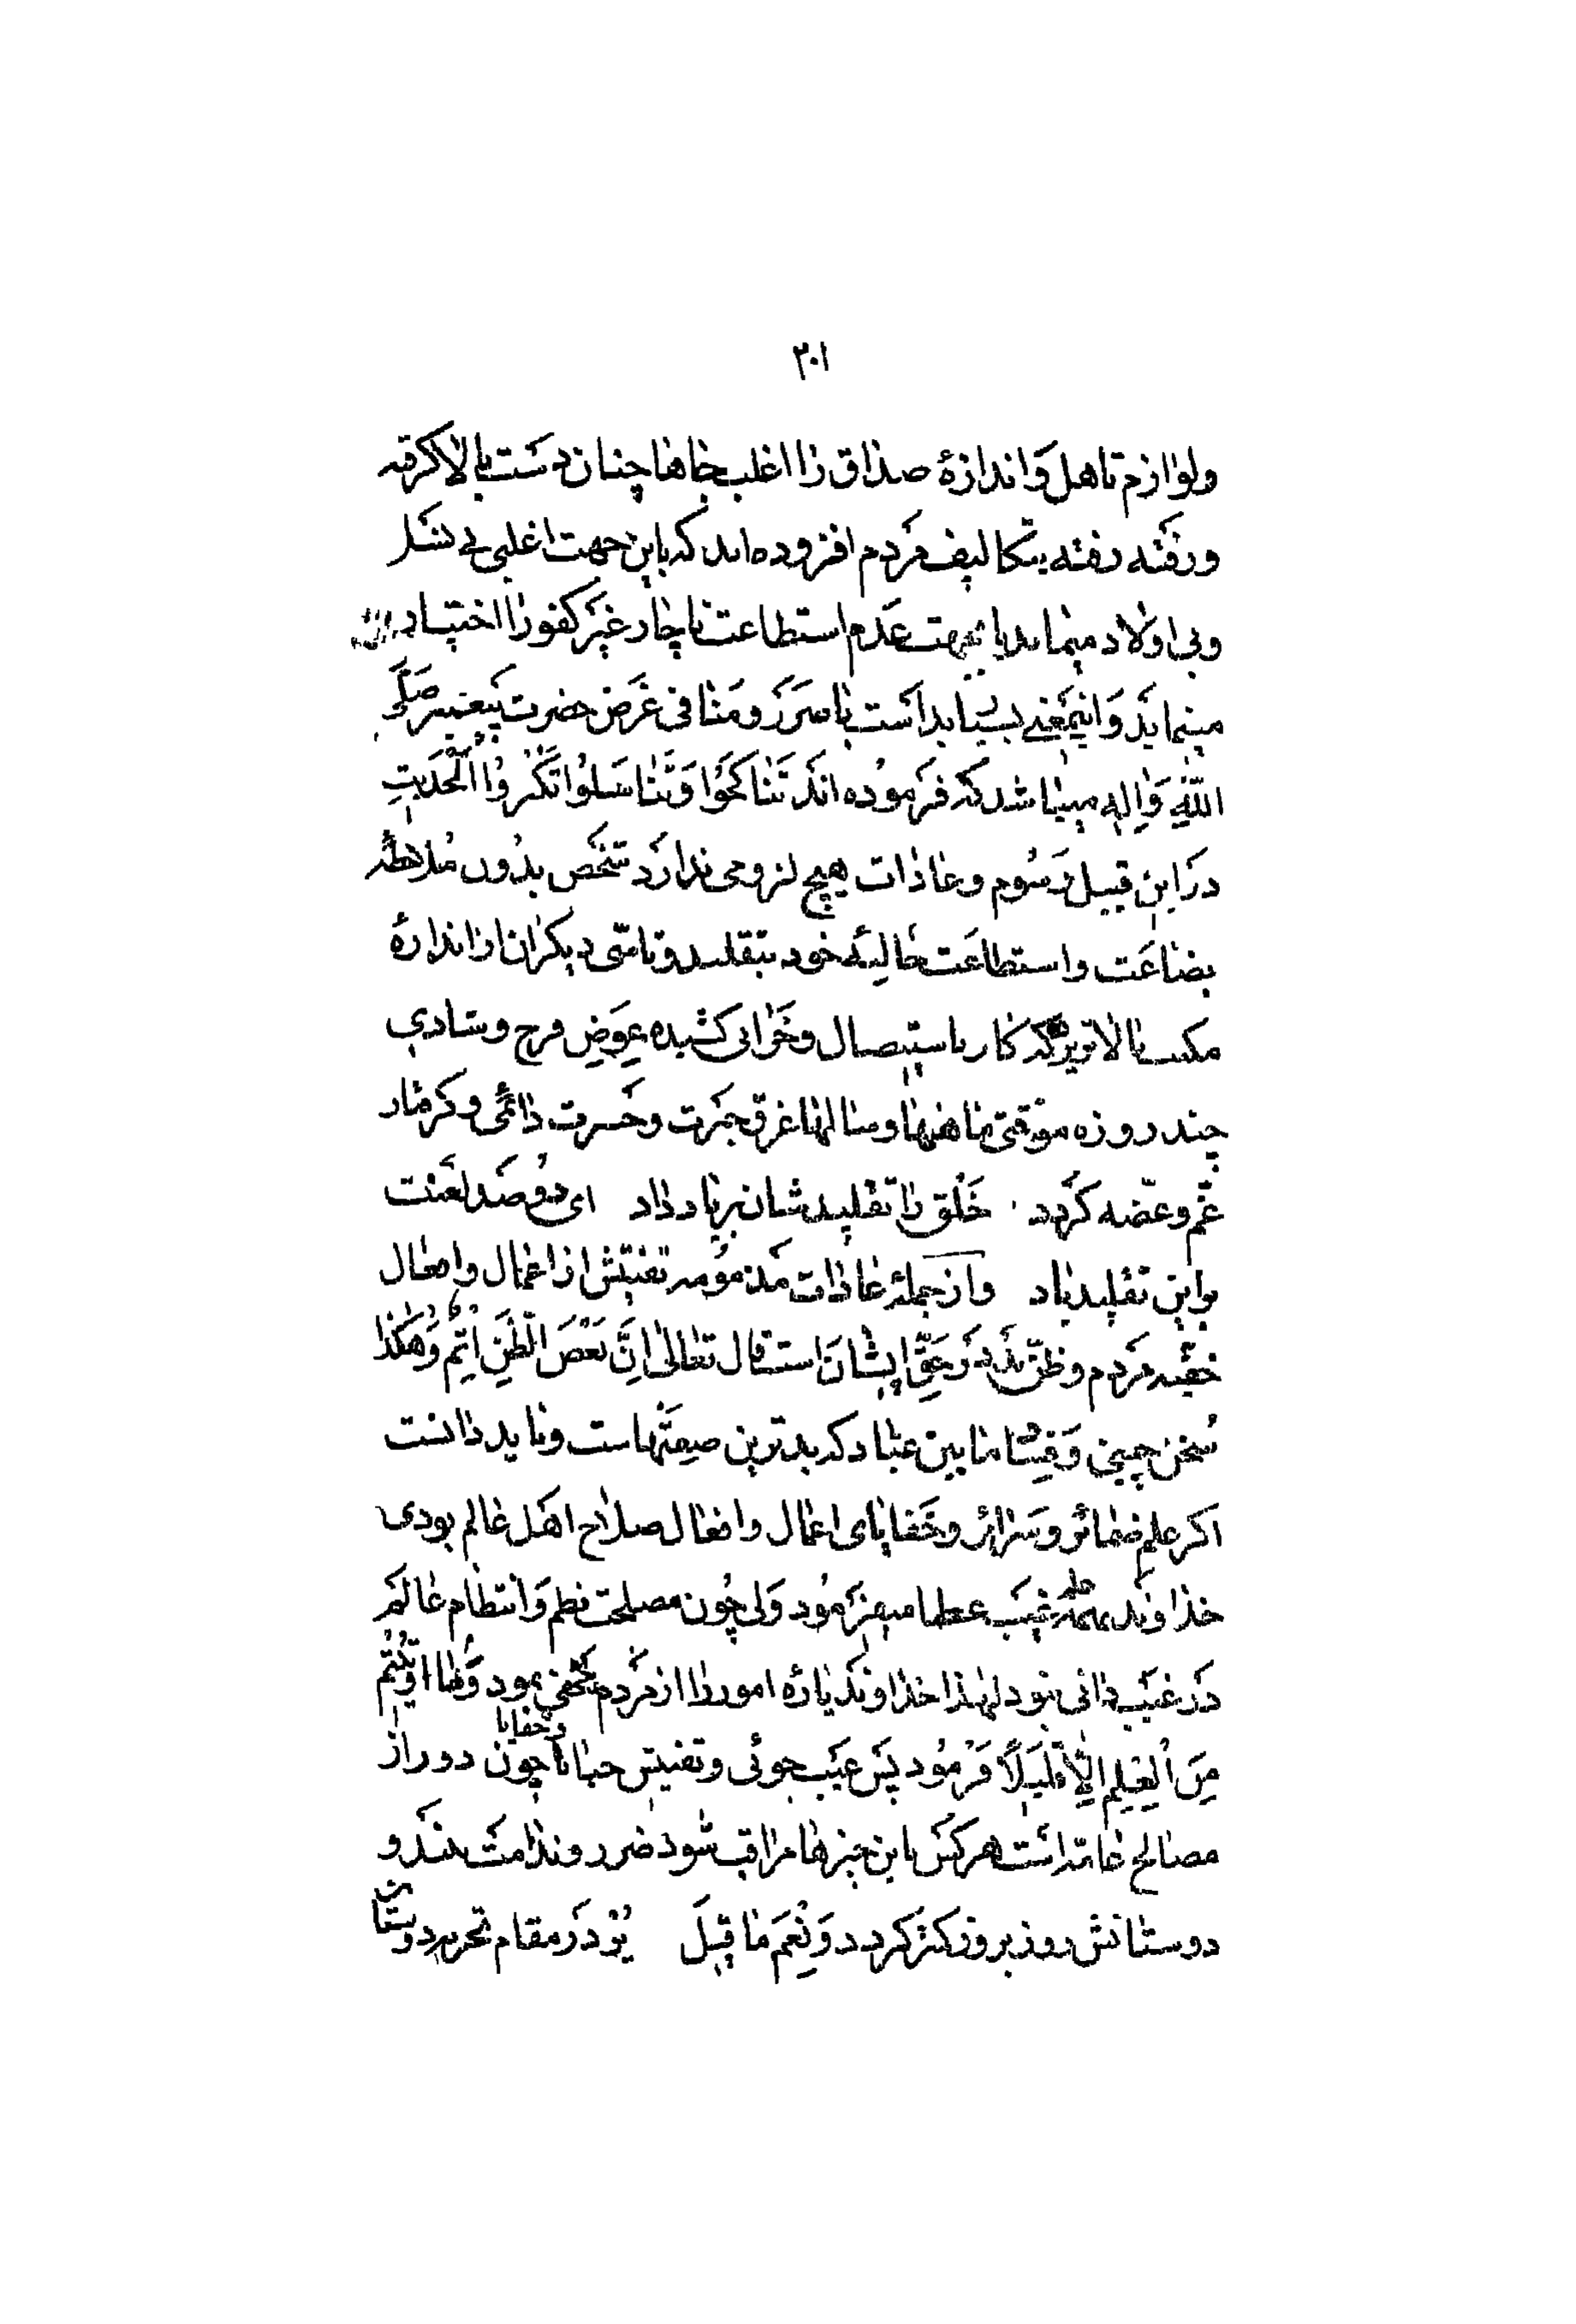 ۳۰۱
ولوازم تاهل و اندازهٔ صداق را اغلب جاها چنان دست بالا گرفته
و رفته رفته بتکالیف مردم افزوده‌اند که باین جهت اغلبی بی
وبی اولاد میمانند یا بجهت عدم استطاعت ناچار غیر کفو را اختیار
مینماید و اینمعنی بسیار بد است یا سرز و منافی غرض حضرت پیغمبر صلّی
اللّهِ وَآلِهِ میباشد که فرموده‌اند تَناکَحُوا وَتَناسَلُوا تَکْثُرُوا الْحَدیثِ
در این قبیل رسوم و عادات هیچ لزومی ندارد شخص بدون ملاحظهٔ
بضاعت و استطاعت حالیهٔ خود بتقلید و تاسّی دیگران از اندازهٔ
بالاتر که کار باستیصال و خرابی کشیده عِوَضِ فرح و شادی
چند روزه موقتی ماهها و سالها غرق حیرت و حسرت دائمی و گرفتار
غم و غصّه گردد خَلْق را تقلیدشان برباد داد ای دوصد لعنت
بر این تقلید باد و از جملهٔ عادات مذمومه تفتیش از اعمال و افعال
خفیّه مردم و ظنّ بد در حَقِّ ایشان است قال تعالی اِنَّ بَعْضَ الظَّنِ اِثِمٌ وَهٰکَذا
سخن چینی و فساد مابین عباد که بدترین صفتهاست و باید دانست
اگر علم ضمائر و سرائر و خفایای اعمال و افعال صلاح اهل عالم بودی
خداوند بهمه علم غیب عطا میفرمود ولی چون مصلحت نظم و انتظام عالم
در غیب دانی نبود لهذا خداوند پارهٔ امور را از مردم مخفی نمود وَما اُوتیتُم
مِنَ الْعِلمِ اِلّا قَلیلًا فرمود پس عیب جوئی و تفتیش خبایا و خفایا چون دور از
مصالح عامّه است هرکس باین چیزها مراقب شود ضرر و ندامت بیند و
دوستانش روز بروز کمتر گردد وَنِعمَ ماقیلَ در مقام تحریر دوستان